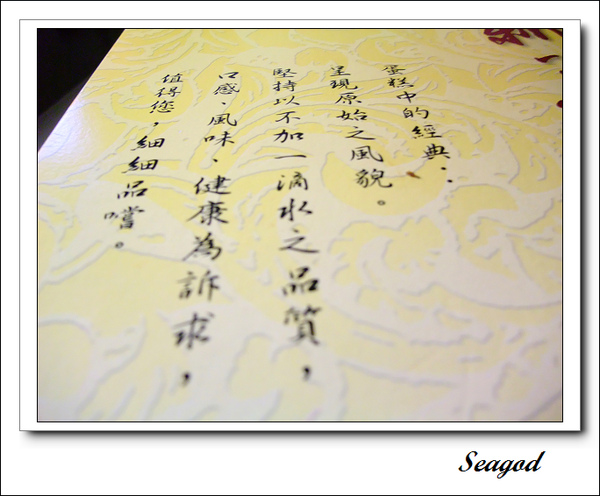 蛋糕中的經典：
呈現原始之風貌。
堅持以不加一滴水之品質，
口感、風味、健康為訴求，
值得您，細細品嚐。
Seagod